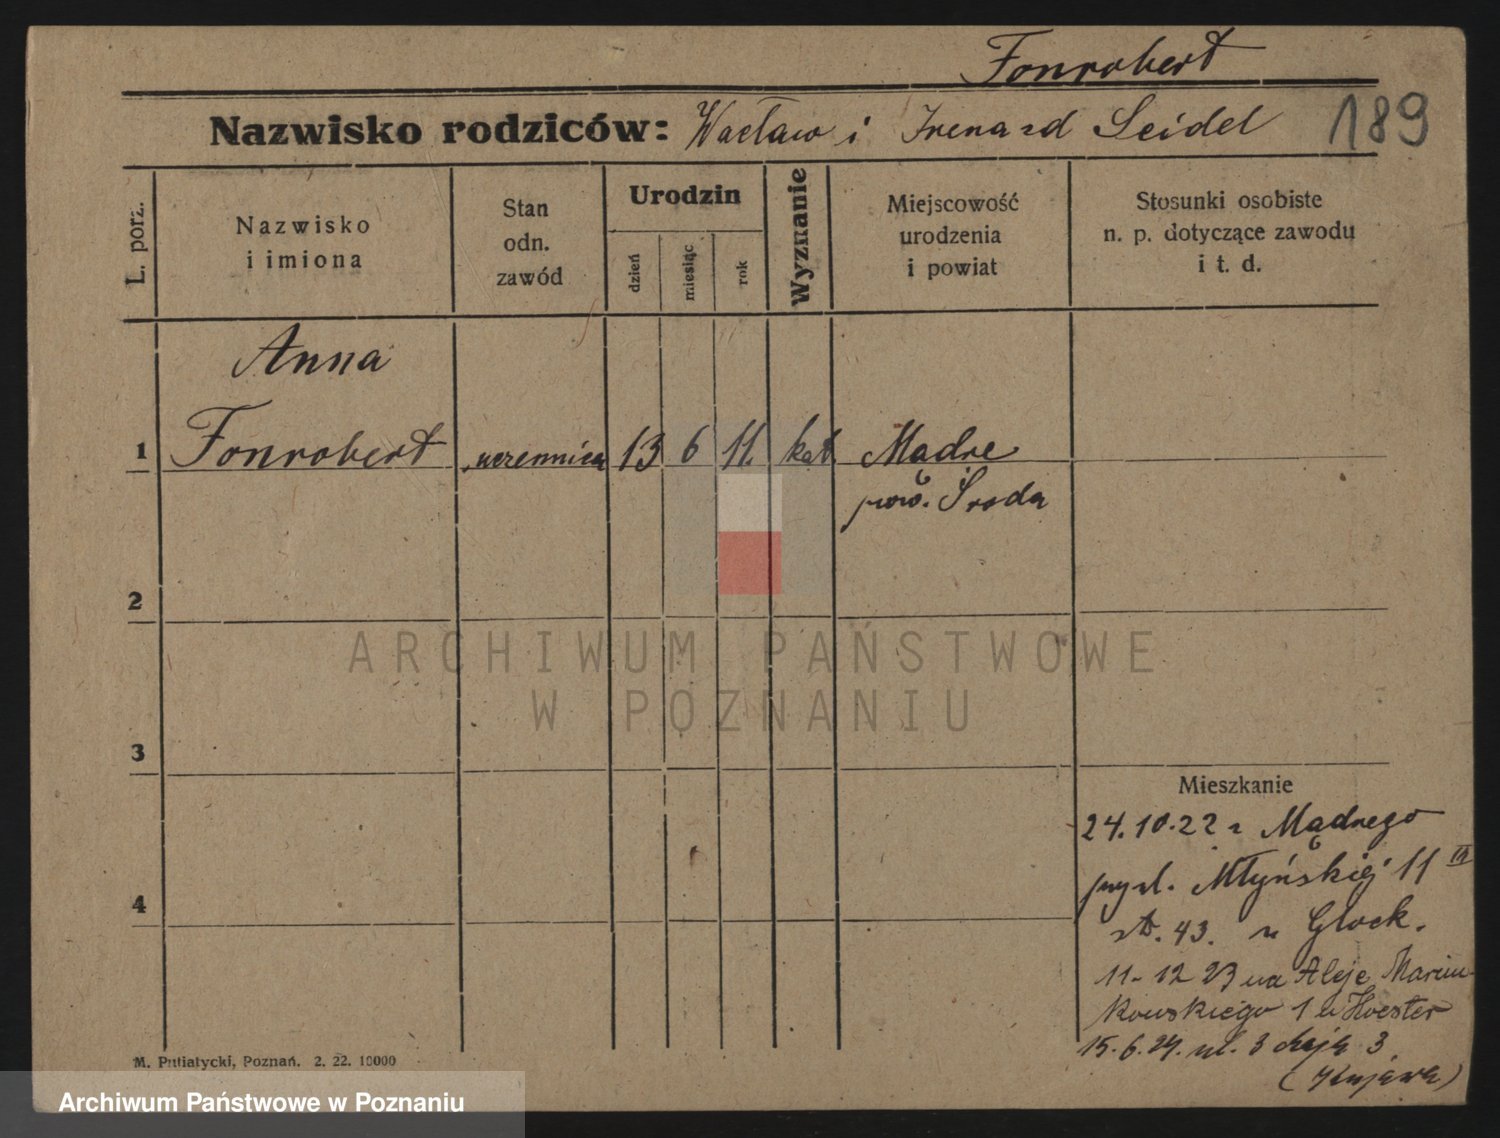 Fonrobert
Nazwisko rodziców: Wacław i Irena zd Seidel 189
L. porz.
Nazwisko
i imiona
Stan
odn.
zawód
Urodzin
dzień
miesiąc
rok
Wyznanie
Miejscowość
urodzenia
i powiat
Stosunki osobiste
n. p. dotyczące zawodu
i t. d.
Anna
1 Fonrobert uczennica 13 6 11. kat. Mądre
pow. Środa
2
ARCHIWUM PAŃSTWOWE
W POZNANIU
3
Mieszkanie
24.10.22 z Mądrego
przy ul. Młyńskiej 11 III
4
43. u Glock.
11-12 23 na Aleje Marcin-
kowskiego 1 u Hoester
15.6.24. ul. 3 Maja 3
M. Putiatycki, Poznań. 2. 22. 10000
Archiwum Państwowe w Poznaniu